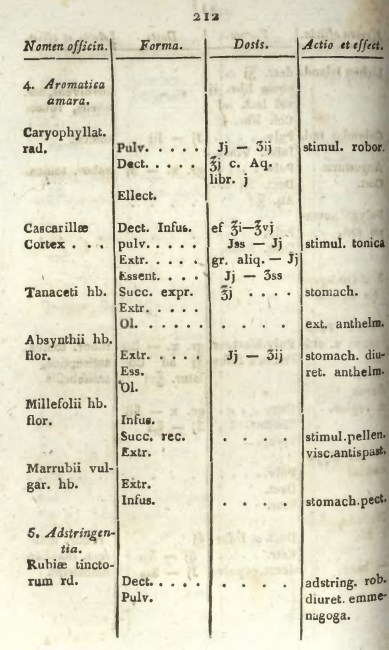 212
Nomen officin. Forma. Dosis. Actio et effect.
4. Aromatica
amara.
Caryophyllat.
rad. Pulv. . . . . Jj — ʒij stimul. robor.
Dect. . . . . ℥j c. Aq.
libr. j
Ellect.
Cascarillæ Dect. Infus. ef ℥i—℥vj
Cortex . . . pulv. . . . . Jss — Jj stimul. tonica
Extr. . . . . gr. aliq. — Jj
Essent. . . . Jj — ʒss
Tanaceti hb. Succ. expr. ℥j . . . . stomach.
Extr. . . . .
Ol. . . . . . . . . . ext. anthelm.
Absynthii hb.
flor. Extr. . . . . Jj — ʒij stomach. diu-
Ess. ret. anthelm.
Ol.
Millefolii hb.
flor. Infus.
Succ. rec. . . . . stimul. pellen.
Extr. visc. antispast.
Marrubii vul-
gar. hb. Extr.
Infus. . . . . stomach. pect.
5. Adstringen-
tia.
Rubiæ tincto-
rum rd. Dect. . . . . . . . . adstring. rob.
Pulv. diuret. emme-
nagoga.